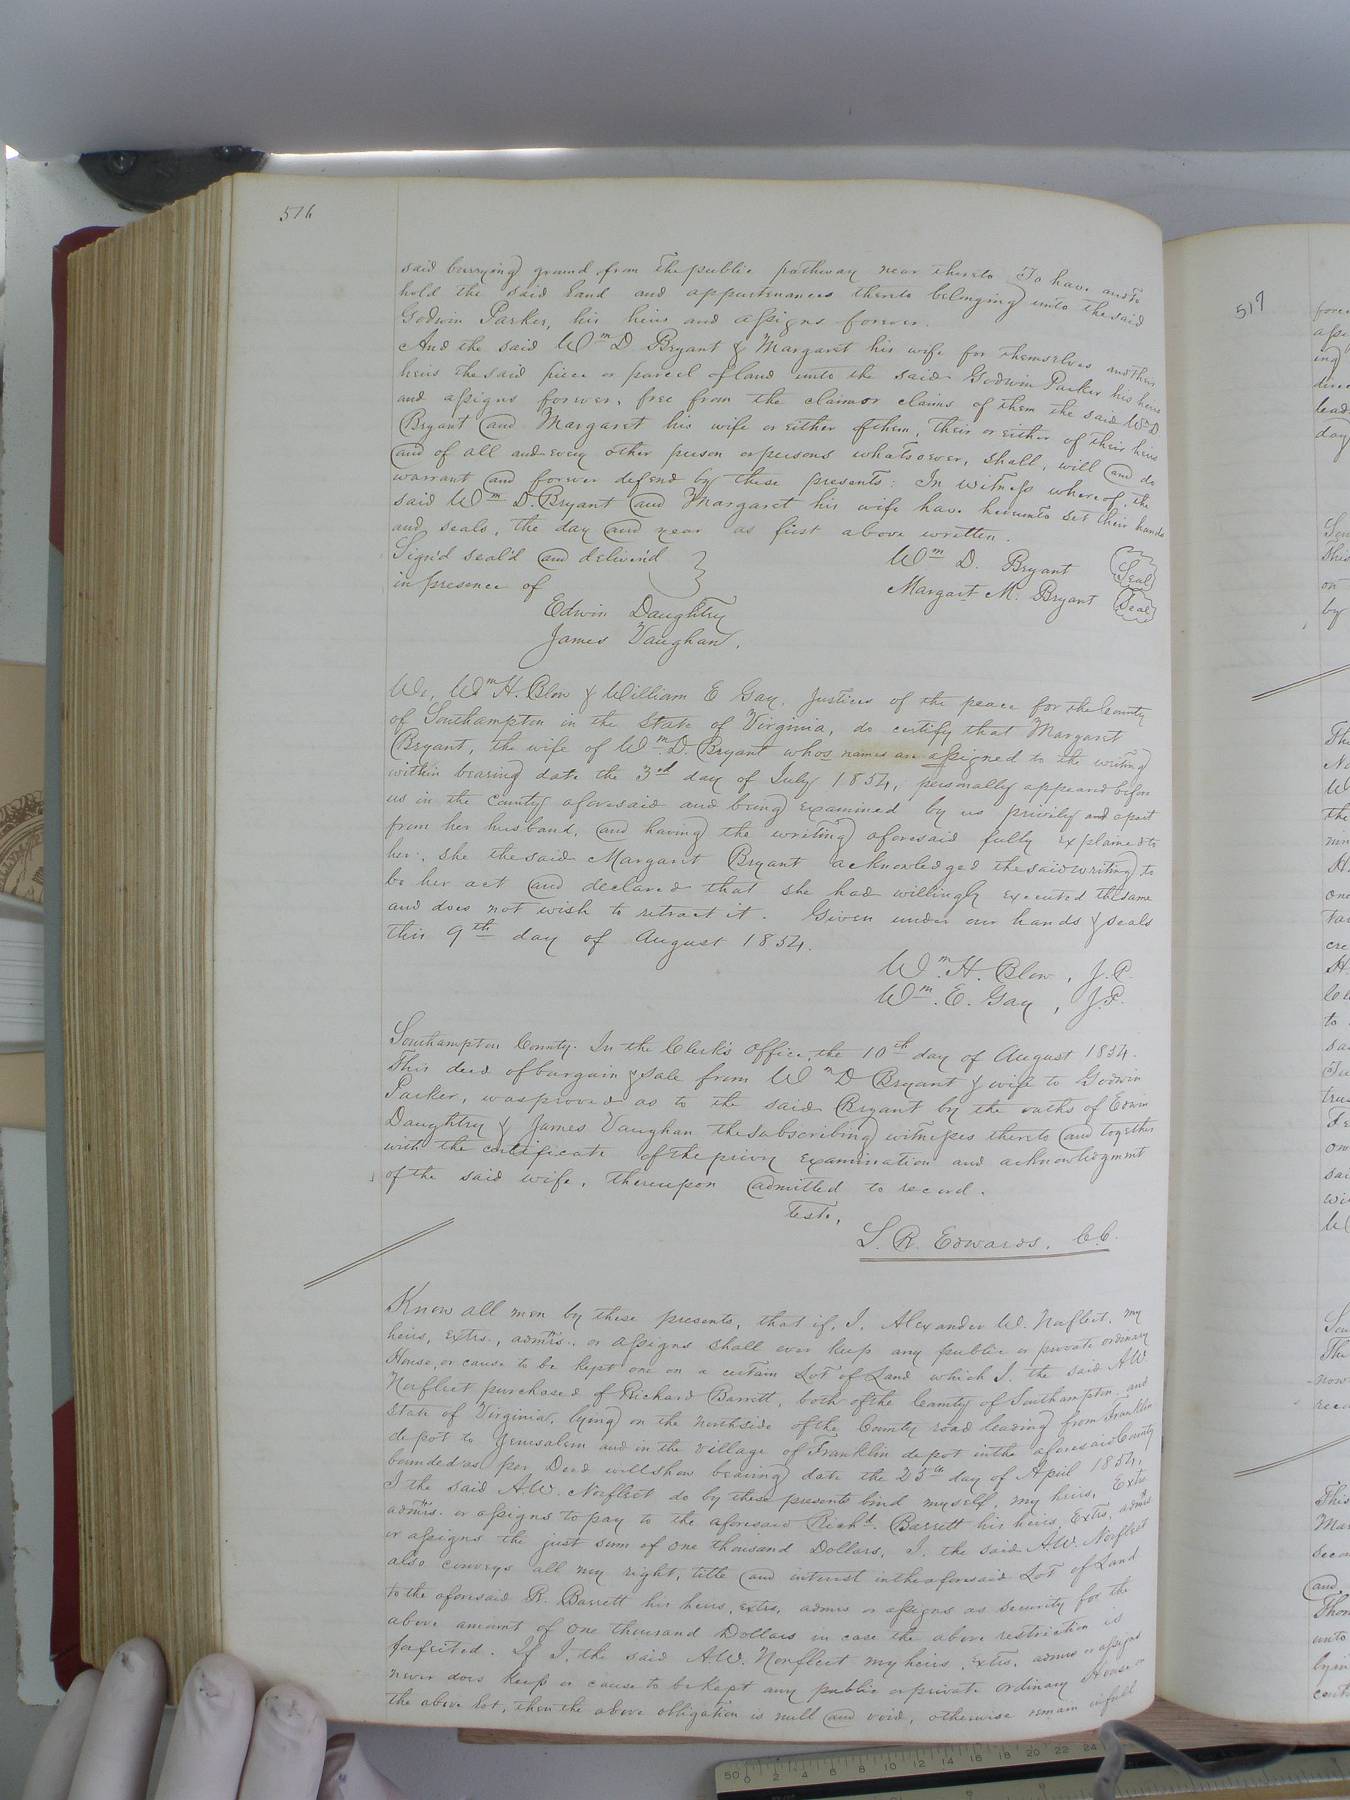 516
said burrying ground from the public pathway near thereto To have and to
hold the said Land and appurtenances thereto belonging unto the said
Godwin Parker, his heirs and assigns forever.
And the said Wm D Bryant & Margaret his wife for themselves and their
heirs the said piece or parcel of land unto the said Godwin Parker his heirs
and assigns forever, free from the claim or claims of them the said Wm D
Bryant and Margaret his wife or either of them, their or either of their heirs
and of all and every other person or persons whatsoever, shall, will and do
warrant and forever defend by these presents: In witness whereof, the
said Wm D. Bryant and Margaret his wife have hereunto set their hands
and seals, the day and year as first above written.
Sign'd seal'd and deliver'd
in presence of
Wm D. Bryant Seal
Margart M. Bryant Seal
Edwin Daughtry
James Vaughan.
We, Wm H. Blow & William E Gay, Justices of the peace for the County
of Southampton in the State of Virginia, do certify that Margaret
Bryant, the wife of Wm D. Bryant whos names are assigned to the writing
within bearing date the 3rd day of July 1854, personally appeard before
us in the county aforesaid and being examined by us privily and apart
from her husband, and having the writing aforesaid fully explained to
her, she the said Margaret Bryant acknowledged the said writing to
be her act and declared that she had willingly executed the same
and does not wish to retract it. Given under our hands & seals
this 9th day of August 1854.
Wm H. Blow, J.P.
Wm. E. Gay, J.P.
Southampton County. In the Clerk's Office, the 10th day of August 1854.
This deed of bargain & sale from Wm D Bryant & wife to Godwin
Parker, was proved as to the said Bryant by the oaths of Edwin
Daughtry & James Vaughan the subscribing witnesses thereto and together
with the certificate of the privy examination and acknowledgment
of the said wife, thereupon admitted to record.
Teste,
L. R. Edwards, C.C.
Know all men by these presents, that if, I, Alexander W. Norfleet, my
heirs, extrs., admrs. or assigns shall ever keep any public or private ordinary
House, or cause to be kept one on a certain Lot of Land which I, the said A.W.
Norfleet purchased of Richard Barrett, both of the County of Southampton and
State of Virginia, lying on the north side of the County road leading from Franklin
depot to Jerusalem and in the village of Franklin depot in the aforesaid County
bounded as per Deed will show bearing date the 25th day of April 1854,
I the said A.W. Norfleet do by these presents bind myself, my heirs, Extrs
admrs. or assigns to pay to the aforesaid Richd. Barrett his heirs, Extrs, admrs
or assigns the just sum of one thousand Dollars, I, the said A.W. Norfleet
also conveys all my right, title and interest in the aforesaid Lot of Land
to the aforesaid R. Barrett his heirs, extrs, admrs or assigns as Security for the
above amount of one thousand Dollars in case the above restriction is
forfeited. If I, the said A.W. Norfleet my heirs, Extrs. admrs or assigns
never does keep or cause to be kept any public or private ordinary House on
the above lot, then the above obligation is null and void, otherwise remain in full
517